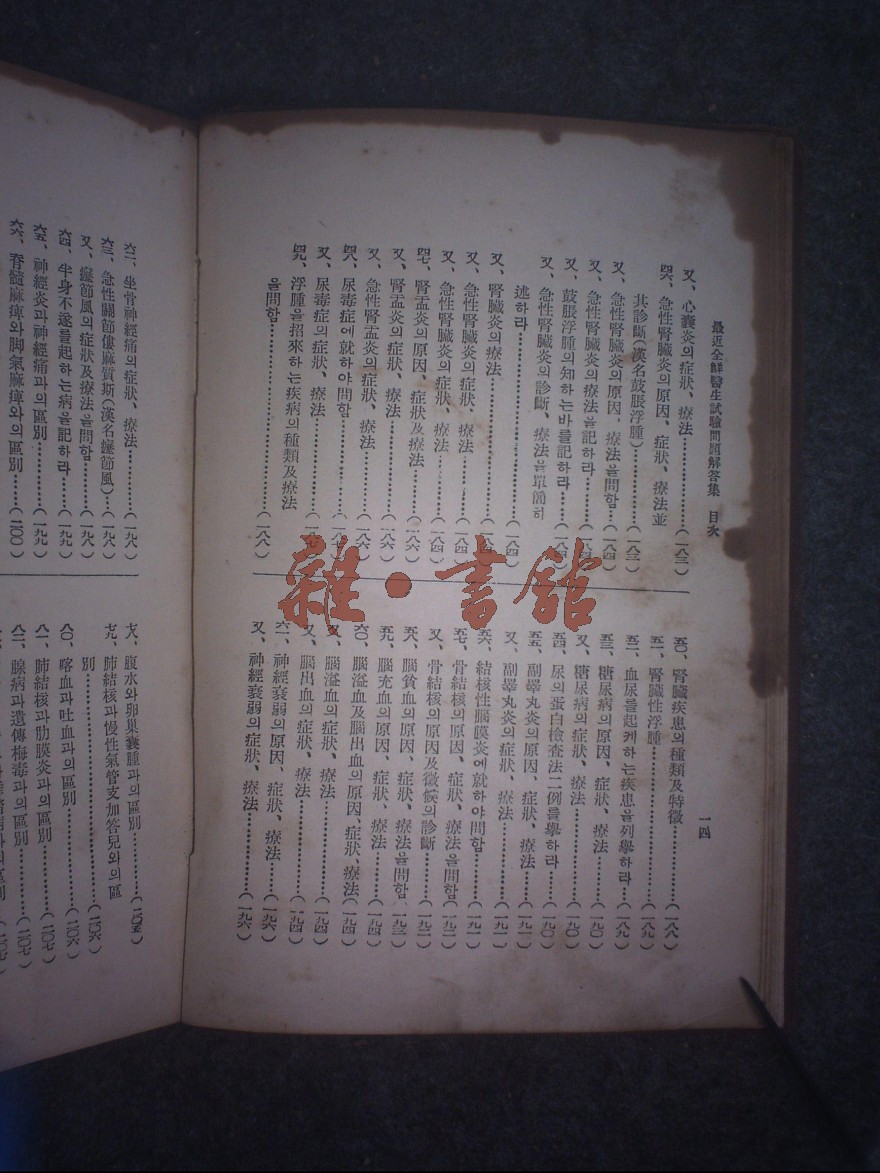 最近全鮮醫生試驗問題解答集 目次
一四
又、心囊炎의症狀、療法…(一八三)
四六、急性腎臟炎의原因、症狀、療法並
其診斷(漢名鼓脹浮腫)…(一八三)
又、急性腎臟炎의原因、療法을問함…(一八四)
又、急性腎臟炎의療法을記하라…(一八四)
又、鼓脹浮腫의知하는바를記하라…(一八四)
又、急性腎臟炎의診斷、療法을單簡히
述하라…(一八四)
又、腎臟炎의療法…(一八四)
又、急性腎臟炎의症狀、療法…(一八四)
又、急性腎臟炎의症狀、療法…(一八四)
四七、腎盂炎의原因、症狀及療法…(一八六)
又、腎盂炎의症狀、療法…(一八六)
又、急性腎盂炎의症狀、療法…(一八六)
四八、尿毒症에就하야問함…(一八七)
又、尿毒症의症狀、療法…(一八七)
四九、浮腫을招來하는疾病의種類及療法
을問함…(一八八)
五〇、腎臟疾患의種類及特徵…(一八八)
五一、腎臟性浮腫…(一八九)
五二、血尿를起케하는疾患을列擧하라…(一八九)
五三、糖尿病의原因、症狀、療法…(一九〇)
又、糖尿病의症狀、療法…(一九〇)
五四、尿의蛋白檢査法二例를擧하라…(一九〇)
五五、副睾丸炎의原因、症狀、療法…(一九一)
又、副睾丸炎의症狀、療法…(一九一)
五六、結核性腦膜炎에就하야問함…(一九一)
五七、骨結核의原因、症狀、療法을問함(一九二)
又、骨結核의原因及徵候의診斷…(一九二)
五八、腦貧血의原因、症狀、療法을問함(一九三)
五九、腦充血의原因、症狀、療法…(一九四)
六〇、腦溢血及腦出血의原因、症狀、療法(一九四)
又、腦溢血의症狀、療法…(一九四)
又、腦出血의症狀、療法…(一九四)
六一、神經衰弱의原因、症狀、療法…(一九六)
又、神經衰弱의症狀、療法…(一九六)
六二、坐骨神經痛의症狀、療法…(一九八)
六三、急性關節僂麻質斯(漢名癧節風)…(一九八)
又、癧節風의症狀及療法을問함…(一九八)
六四、半身不遂를起하는病을記하라…(一九九)
六五、神經炎과神經痛과의區別…(一九九)
六六、脊髓麻痺와脚氣麻痺와의區別…(二〇〇)
七八、腹水와卵巢囊腫과의區別…(二〇五)
七九、肺結核과慢性氣管支加答兒와의區
別…(二〇六)
八〇、喀血과吐血과의區別…(二〇六)
八一、肺結核과肋膜炎과의區別…(二〇七)
八二、腺病과遺傳梅毒과의區別…(二〇七)
雜·書館